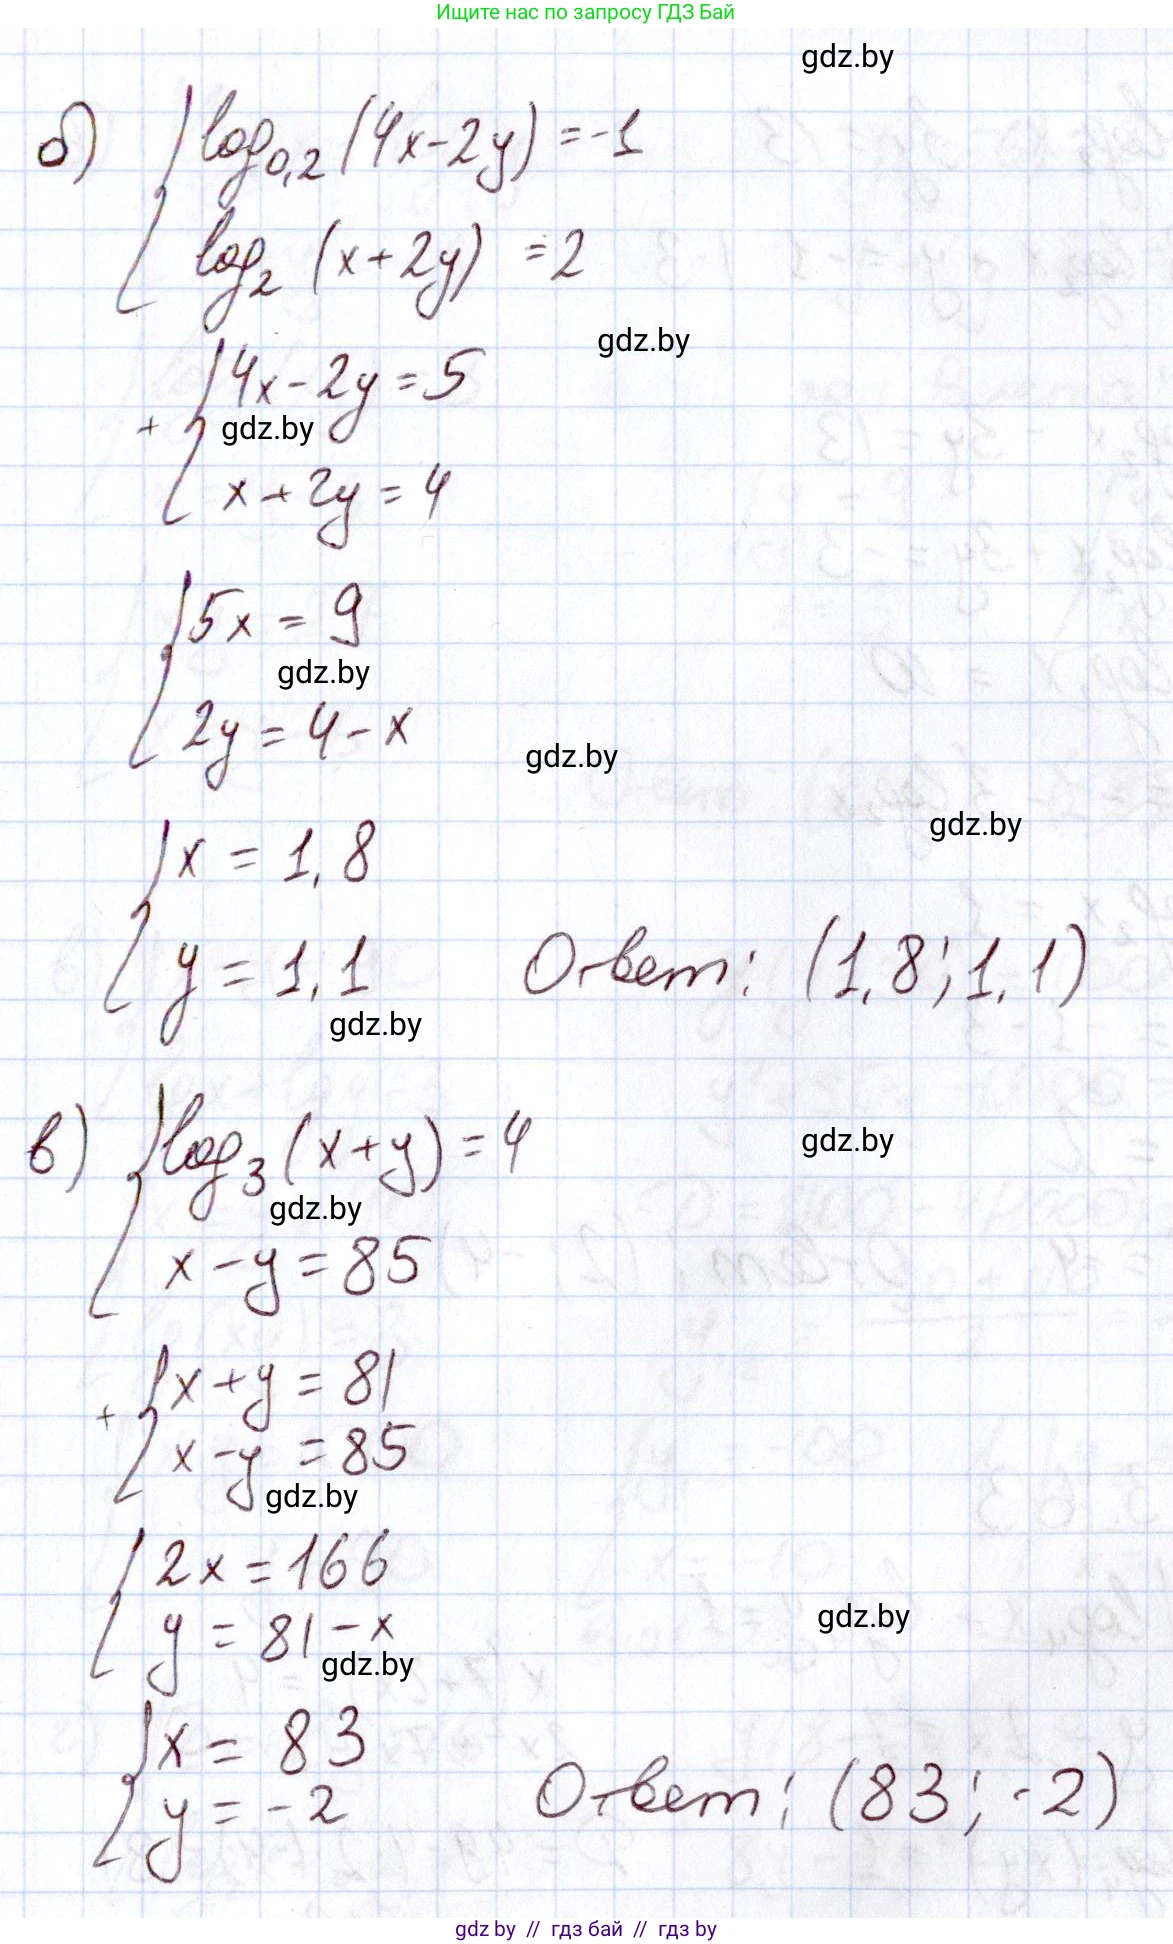 Ищите нас по запросу ГДЗ Бай
gdz.by
б) { log₀,₂ (4x-2y) = -1
log₂ (x+2y) = 2
gdz.by
+ { 4x-2y = 5
gdz.by
x+2y = 4
{ 5x = 9
gdz.by
2y = 4-x
gdz.by
gdz.by
{ x = 1,8
y = 1,1 Ответ: (1,8; 1,1)
gdz.by
в) { log₃ (x+y) = 4
gdz.by
gdz.by
x-y = 85
+ { x+y = 81
x-y = 85
gdz.by
{ 2x = 166
y = 81-x
gdz.by
gdz.by
{ x = 83
y = -2 Ответ: (83; -2)
gdz.by // гдз бай // гдз by